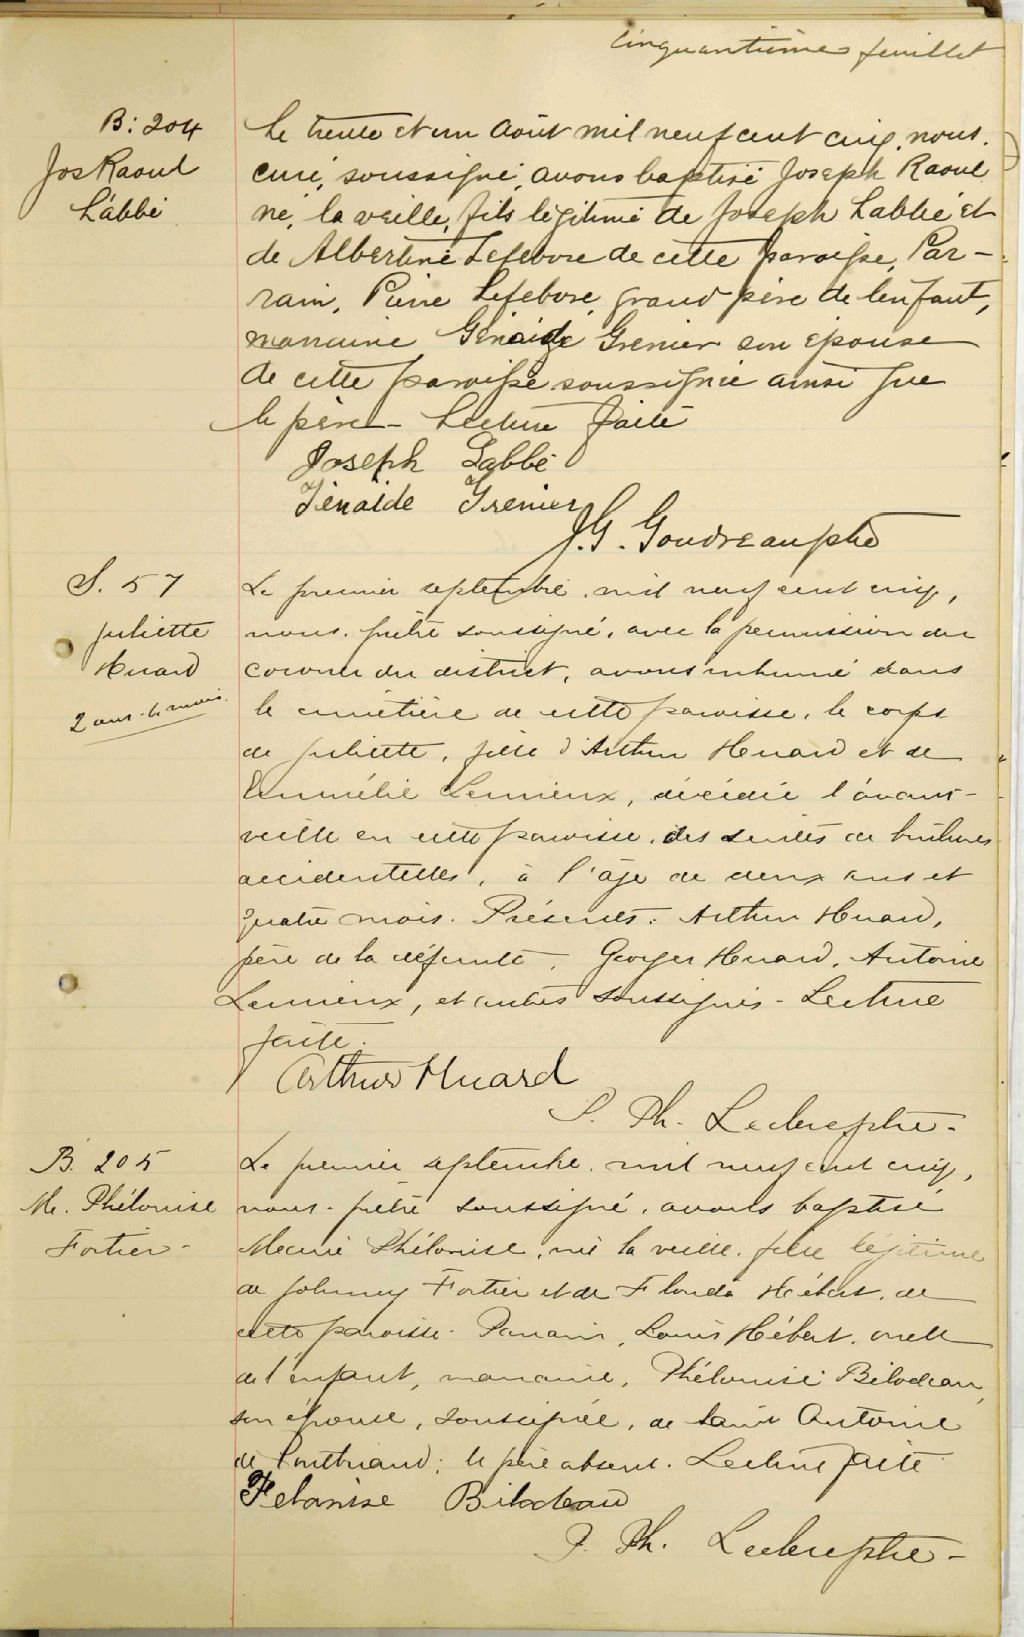 Cinquantième feuillet
B: 204
Jos Raoul
Labbé
Le trente et un Août mil neuf cent cinq, nous
curé, soussigné, avons baptisé Joseph Raoul
né, la veille, fils légitime de Joseph Labbé et
de Albertine Lefebvre de cette paroisse, Par-
rain, Pierre Lefebvre, grand père de l'enfant,
marraine Génaide Grenier son épouse
de cette paroisse soussignée ainsi que
le père - Lecture faite
Joseph Labbé
Zénaide Grenier
J. G. Goudreau ptre
S. 57
Juliette
Huard
2 ans. 4 mois.
Le premier septembre, mil neuf cent cinq,
nous, prêtre soussigné, avec la permission du
coroner du district, avons inhumé dans
le cimetière de cette paroisse, le corps
de Juliette, fille d'Arthur Huard et de
Emmélie Lemieux, décédée l'avant-
veille en cette paroisse, des suites de brûlures
accidentelles, à l'âge de deux ans et
quatre mois. Présents: Arthur Huard,
père de la défunte, Georges Huard, Antoine
Lemieux, et autres soussignés - Lecture
faite.
Arthur Huard
J. Ph. Leclerc ptre -
B. 205
M. Phélonise
Fortier -
Le premier septembre, mil neuf cent cinq,
nous, prêtre soussigné, avons baptisé
Marie Phélonise, née la veille, fille légitime
de Johnny Fortier et de Florida Hébert, de
cette paroisse. Parrain, Louis Hébert, oncle
de l'enfant, marraine, Phélonise Bilodeau,
son épouse, soussignée, de Saint Antoine
de Pontbriand; le père absent. Lecture faite
Felonise Bilodeau
J. Ph. Leclerc ptre -